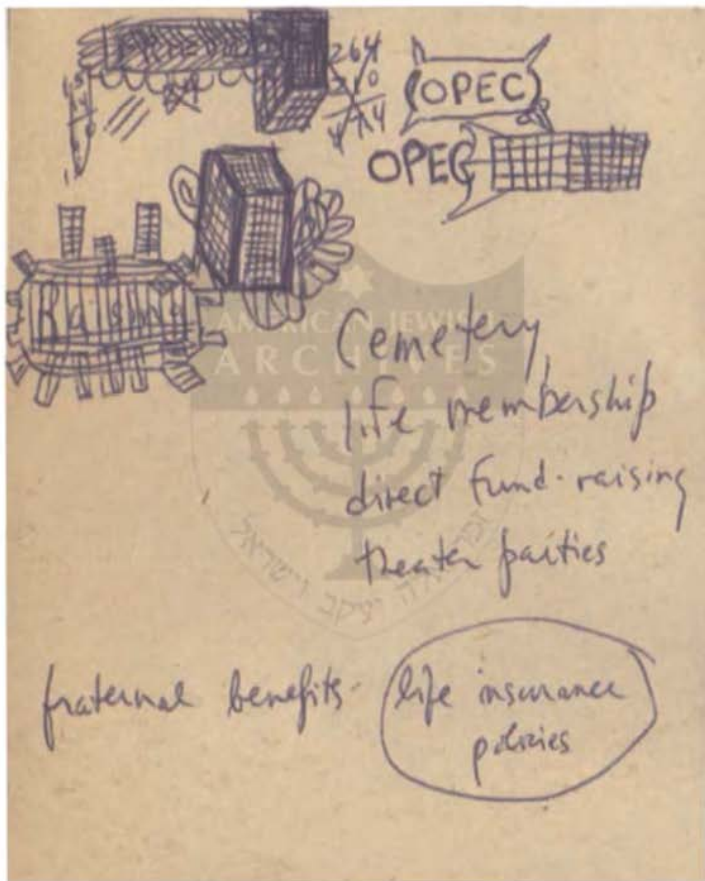 264
(OPEC)
OPEC
Raising
AMERICAN JEWISH
ARCHIVES
Cemetery,
life membership
direct fund-raising
theater parties
fraternal benefits
life insurance
policies